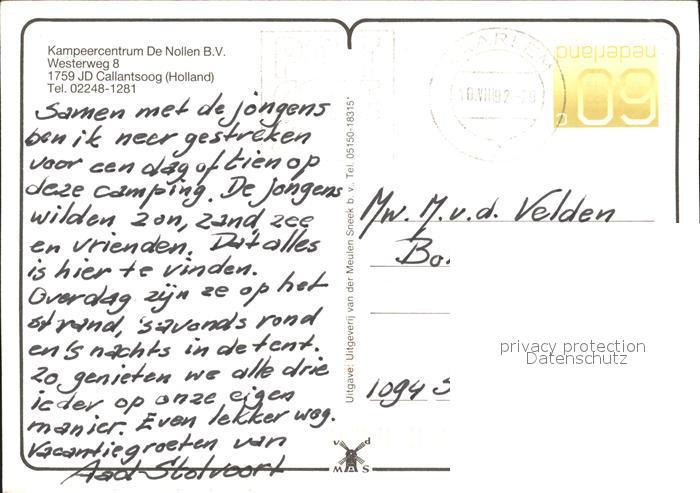 Kampeercentrum De Nollen B.V.
Westerweg 8
1759 JD Callantsoog (Holland)
Tel. 02248-1281
Samen met de jongens
ben ik neer gestreken
voor een dag of tien op
deze camping. De jongens
wilden zon, zand, zee
en vrienden. Dat alles
is hier te vinden.
Overdag zijn ze op het
strand, 's avonds rond
en 's nachts in de tent.
Zo genieten we alle drie
ieder op onze eigen
manier. Even lekker weg.
Vacantiegroeten van
Aad Stolvoort
Uitgave: Uitgeverij van der Meulen Sneek b.v. Tel. 05150-18315*
HAARLEM
nederland
60 c
Mw. M. v.d. Velden
1094 S
privacy protection
Datenschutz
v d
MAS